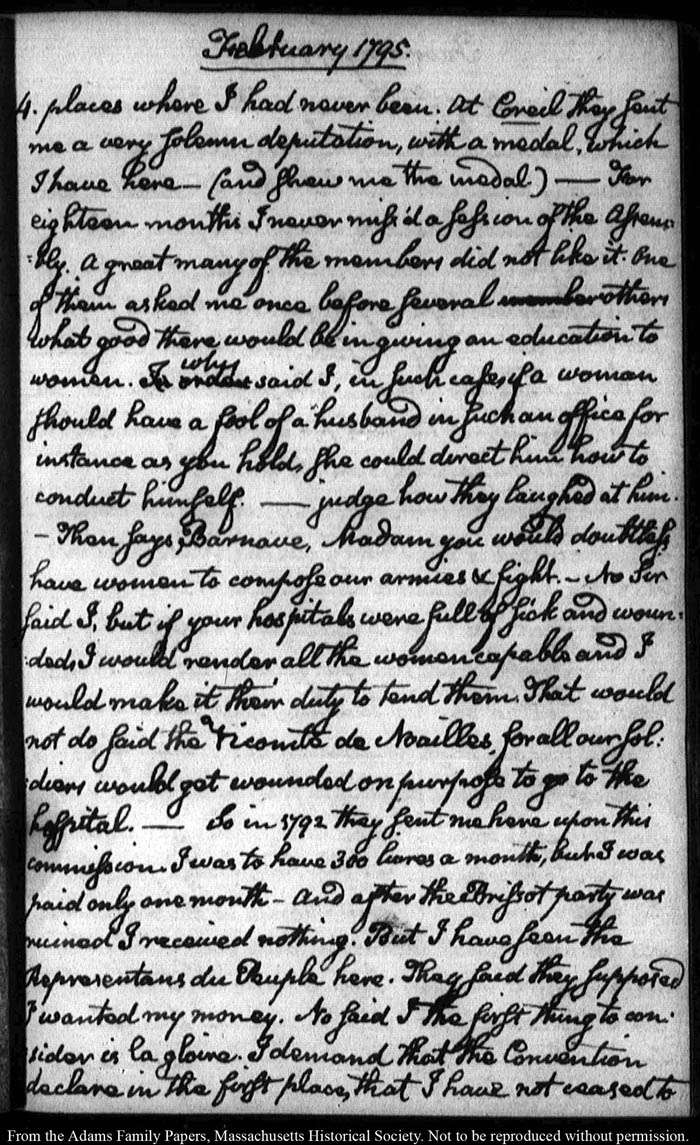 February 1795.
4. places where I had never been. At Coreil they sent
me a very solemn deputation, with a medal, which
I have here — (and shew me the medal.) — For
eighteen months I never miss'd a session of the Assem-
:bly. A great many of the members did not like it: One
of them asked me once before several member others
what good there would be in giving an education to
women. In order why said I, in such cases, if a woman
should have a fool of a husband in such an office for
instance as you hold, she could direct him how to
conduct himself. — judge how they laughed at him.
– Then says Barnave, Madam you would doubtless
have women to compose our armies & fight. – No Sir
said I, but if your hospitals were full of sick and woun-
:ded, I would render all the women capable and I
would make it their duty to tend them. That would
not do said the Vicomte de Noailles, for all our sol:
diers would get wounded on purpose to go to the
hospital. — So in 1792 they sent me here upon this
commission. I was to have 300 livres a month, but I was
paid only one month – and after the Brissot party was
ruined I received nothing. But I have seen the
Representans du Peuple here. They said they supposed
I wanted my money. No said I the first thing to con:
sider is la gloire. I demand that the Convention
declare in the first place, that I have not ceased to
From the Adams Family Papers, Massachusetts Historical Society. Not to be reproduced without permission